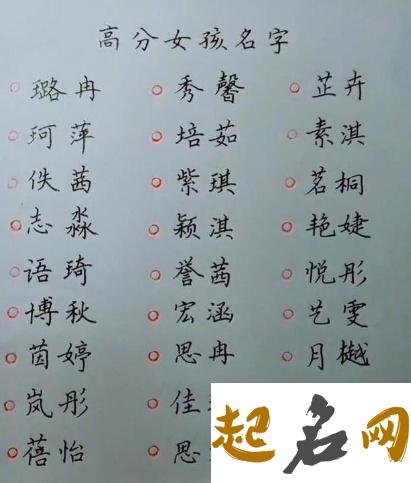 高分女孩名字
璐冉 秀馨 芷卉
珂萍 培茹 素淇
佚茜 紫琪 茗桐
志淼 颖淇 艳婕
语琦 誉茜 悦彤
博秋 宏涵 艺雯
茵婷 思冉 月樾
岚彤 佳
蓓怡 思
起名网